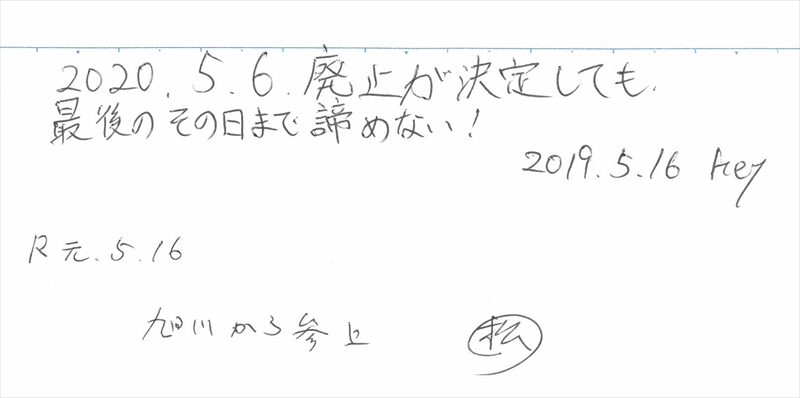 2020.5.6.廃止が決定しても、
最後のその日まで諦めない!
2019.5.16 Hey
R元.5.16
旭川から参上
松